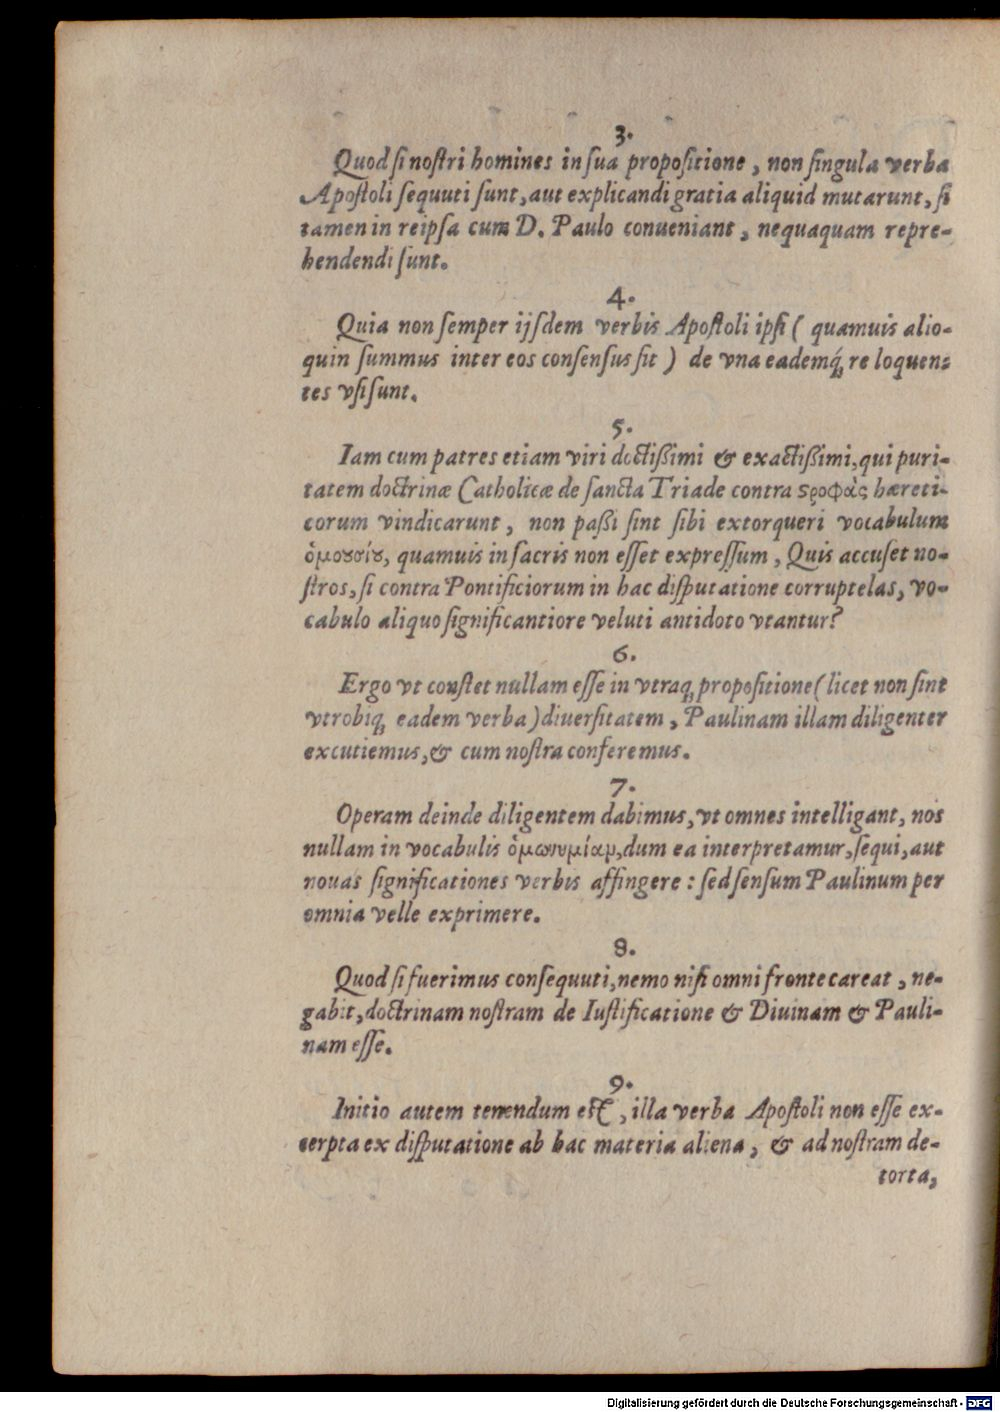 3.
Quod ſi noſtri homines in ſua propoſitione, non ſingula verba
Apoſtoli ſequuti ſunt, aut explicandi gratia aliquid mutarunt, ſi
tamen in reipſa cum D. Paulo conueniant, nequaquam repre-
hendendi ſunt.
4.
Quia non ſemper ijſdem verbis Apoſtoli ipſi ( quamuis alio-
quin ſummus inter eos conſenſus ſit ) de vna eademq́; re loquen-
tes vſi ſunt.
5.
Iam cum patres etiam viri doctißimi & exactißimi, qui puri-
tatem doctrinæ Catholicæ de ſancta Triade contra ϛροφὰς hæreti-
corum vindicarunt, non paßi ſint ſibi extorqueri vocabulum
ὁμοȣσίȣ, quamuis in ſacris non eſſet expreſſum, Quis accuſet no-
ſtros, ſi contra Pontificiorum in hac diſputatione corruptelas, vo-
cabulo aliquo ſignificantiore veluti antidoto vtantur?
6.
Ergo vt conſtet nullam eſſe in vtraq; propoſitione (licet non ſint
vtrobiq; eadem verba) diuerſitatem, Paulinam illam diligenter
excutiemus, & cum noſtra conferemus.
7.
Operam deinde diligentem dabimus, vt omnes intelligant, nos
nullam in vocabulis ὁμωνυμίαμ, dum ea interpretamur, ſequi, aut
nouas ſignificationes verbis affingere : ſed ſenſum Paulinum per
omnia velle exprimere.
8.
Quod ſi fuerimus conſequuti, nemo niſi omni fronte careat, ne-
gabit, doctrinam noſtram de Iuſtificatione & Diuinam & Pauli-
nam eſſe.
9.
Initio autem tenendum eſt, illa verba Apoſtoli non eſſe ex-
cerpta ex diſputatione ab hac materia aliena, & ad noſtram de-
torta,
Digitalisierung gefördert durch die Deutsche Forschungsgemeinschaft - DFG